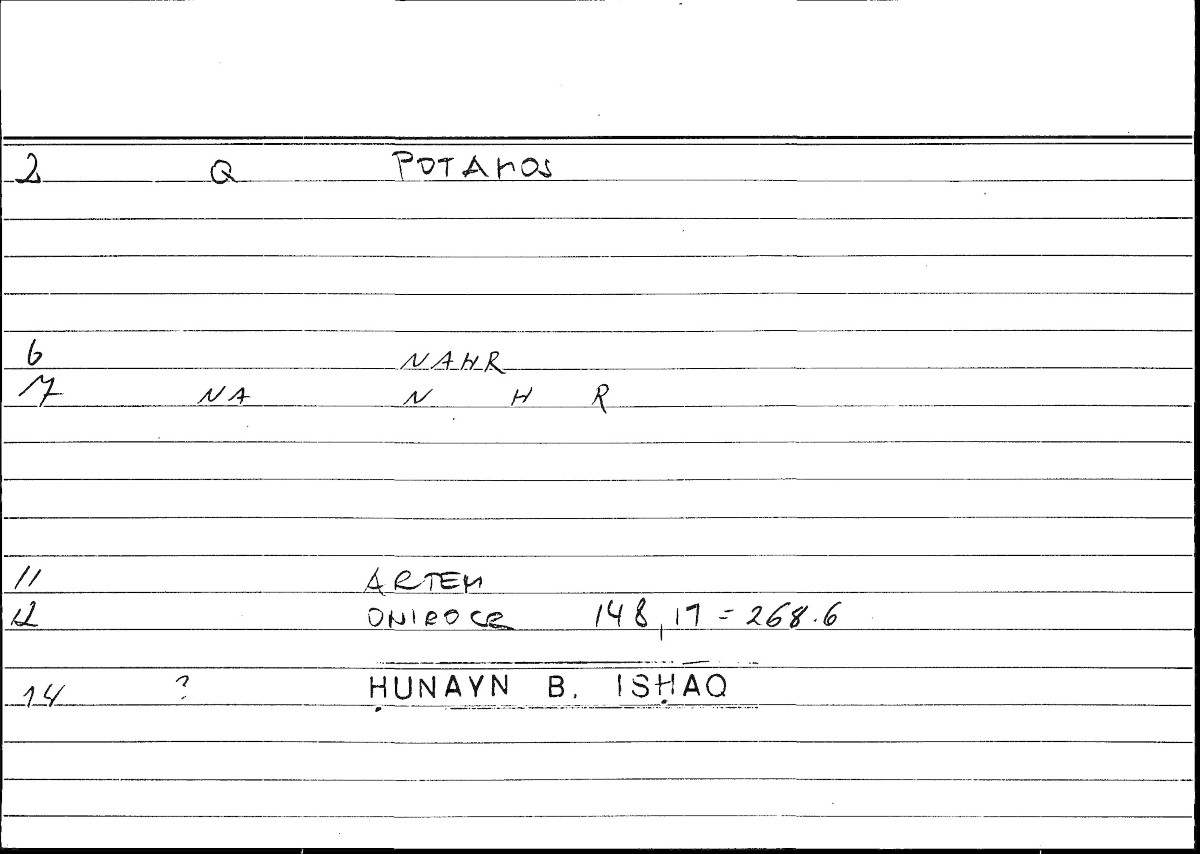 2 Q POTAMOS
6 NAHR
7 NA N H R
11 ARTEM
12 ONIROCR 148,17 = 268.6
14 ? ḤUNAYN B. ISḤAQ